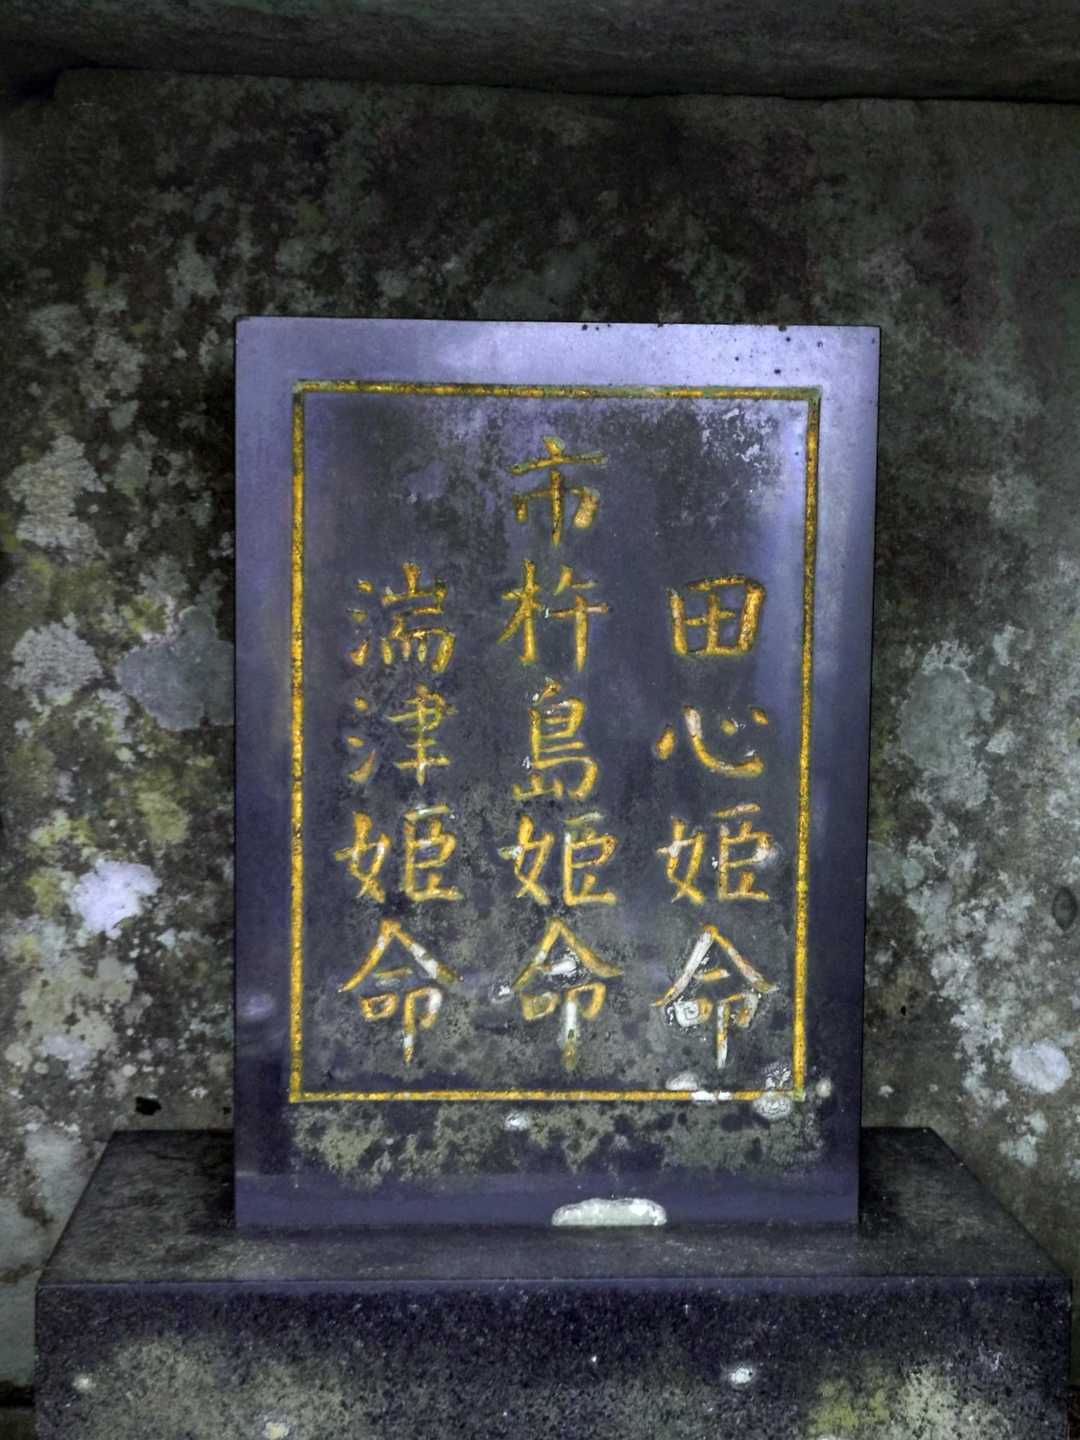 田心姫命
市杵島姫命
湍津姫命